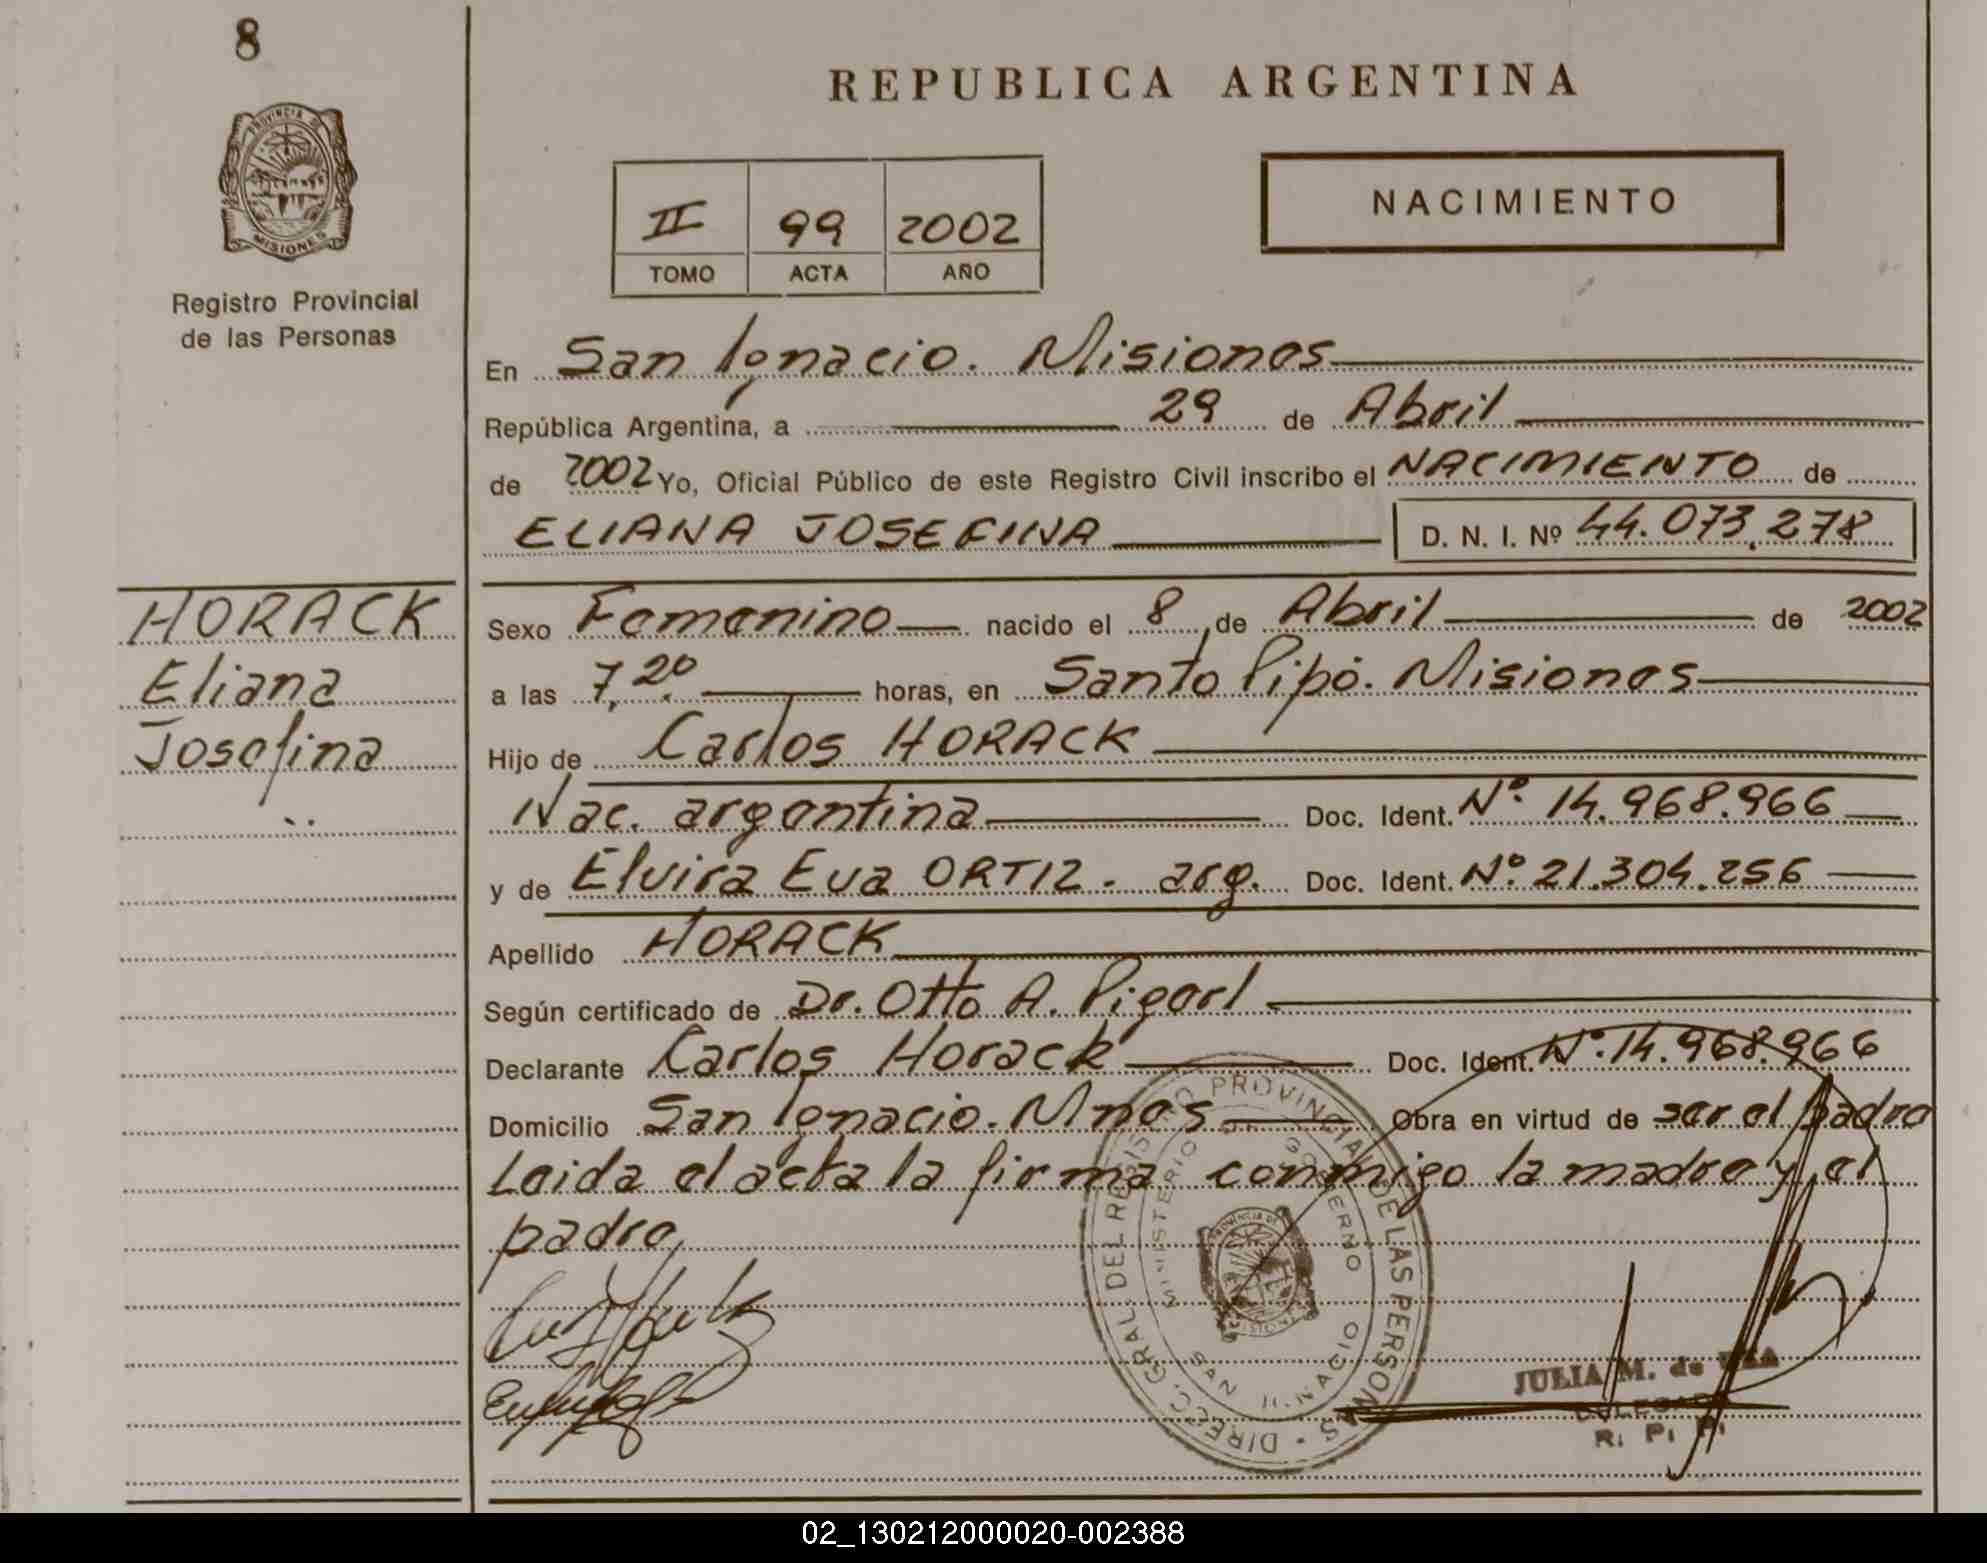 8
REPUBLICA ARGENTINA
PROVINCIA DE
MISIONES
Registro Provincial
de las Personas
II 99 2002
TOMO ACTA AÑO
NACIMIENTO
En San Ignacio. Misiones
República Argentina, a 29 de Abril
de 2002 Yo, Oficial Público de este Registro Civil inscribo el NACIMIENTO de
ELIANA JOSEFINA D. N. I. Nº 44.073.278
HORACK
Eliana
Josefina
Sexo Femenino nacido el 8 de Abril de 2002
a las 7,20 horas, en Santo Pipó. Misiones
Hijo de Carlos HORACK
Nac. argentina Doc. Ident. Nº 14.968.966
y de Elvira Eva ORTIZ. arg. Doc. Ident. Nº 21.304.256
Apellido HORACK
Según certificado de Dr. Otto A. Pigerl
Declarante Carlos Horack Doc. Ident. Nº 14.968.966
Domicilio San Ignacio. Mnes Obra en virtud de ser el padre
Leida el acta la firma conmigo la madre y el
padre
DIRECC. GRAL. DEL REGISTRO PROVINCIAL DE LAS PERSONAS
MINISTERIO DE GOBIERNO
SAN IGNACIO
JULIA M. de
R. P. P.
02_130212000020-002388